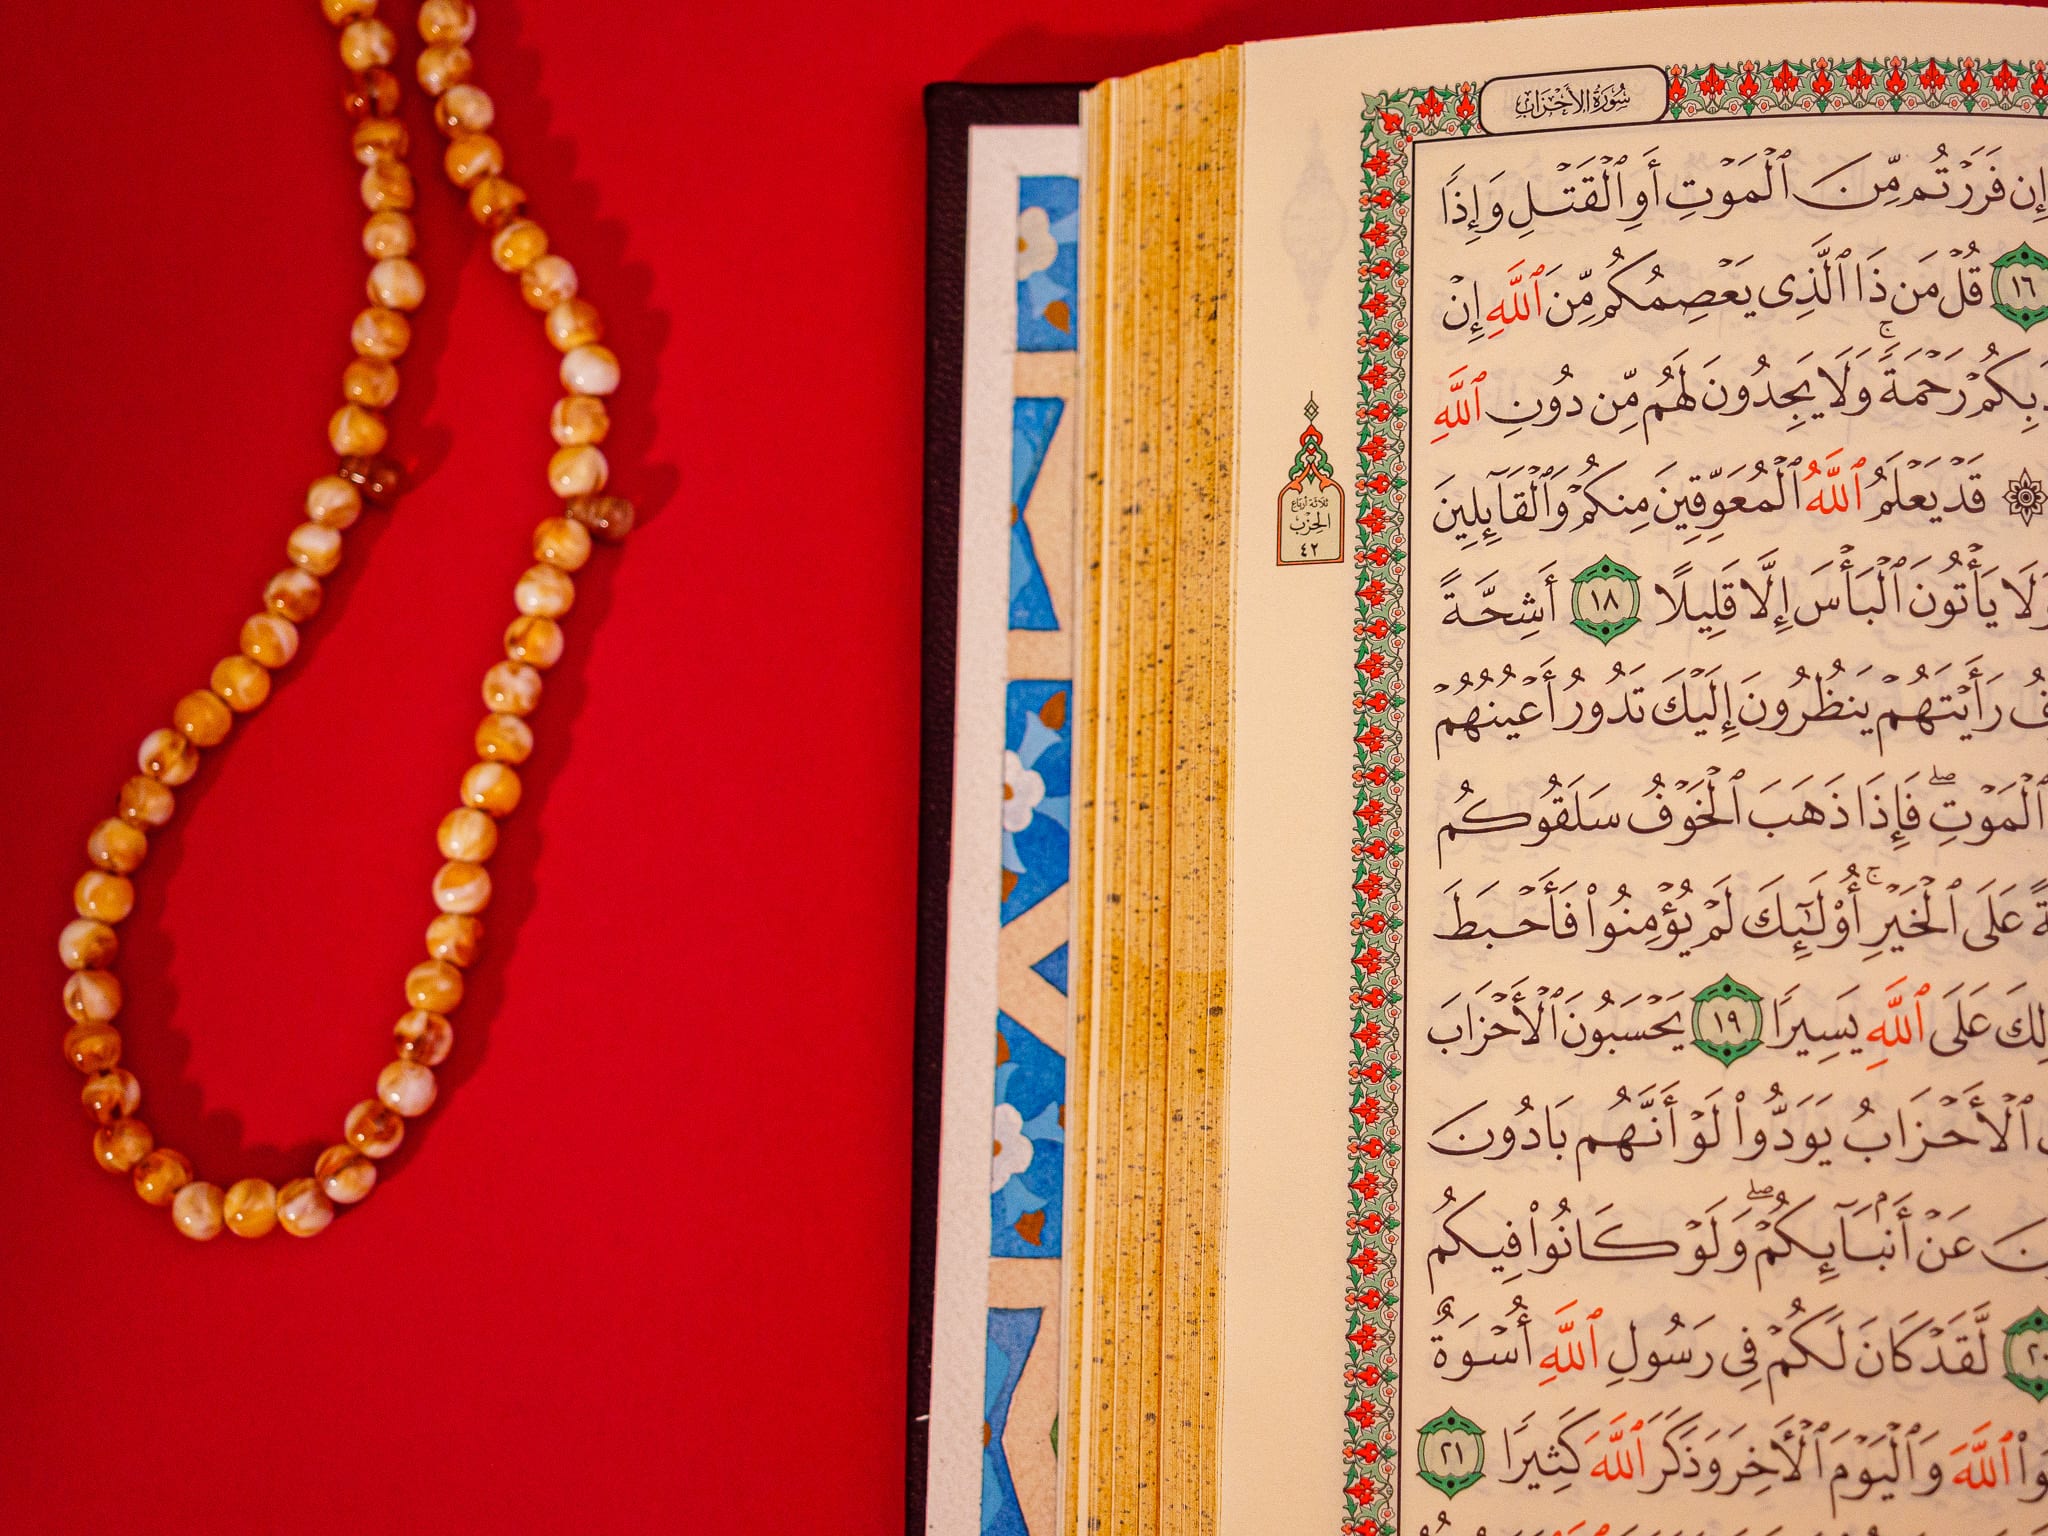 سُورَةُ الأَحْزَابِ
إِن فَرَرْتُم مِّنَ ٱلْمَوْتِ أَوِ ٱلْقَتْلِ وَإِذًا
١٦ قُلْ مَن ذَا ٱلَّذِى يَعْصِمُكُم مِّنَ ٱللَّهِ إِنْ
بِكُمْ رَحْمَةً ۚ وَلَا يَجِدُونَ لَهُم مِّن دُونِ ٱللَّهِ
۞ قَدْ يَعْلَمُ ٱللَّهُ ٱلْمُعَوِّقِينَ مِنكُمْ وَٱلْقَآئِلِينَ
ثلاثة أرباع
الحزب
٤٢
وَلَا يَأْتُونَ ٱلْبَأْسَ إِلَّا قَلِيلًا ١٨ أَشِحَّةً
رَأَيْتَهُمْ يَنظُرُونَ إِلَيْكَ تَدُورُ أَعْيُنُهُمْ
ٱلْمَوْتِ ۖ فَإِذَا ذَهَبَ ٱلْخَوْفُ سَلَقُوكُم
عَلَى ٱلْخَيْرِ ۚ أُو۟لَـٰٓئِكَ لَمْ يُؤْمِنُوا۟ فَأَحْبَطَ
لِكَ عَلَى ٱللَّهِ يَسِيرًا ١٩ يَحْسَبُونَ ٱلْأَحْزَابَ
ٱلْأَحْزَابُ يَوَدُّوا۟ لَوْ أَنَّهُم بَادُونَ
عَنْ أَنۢبَآئِكُمْ ۖ وَلَوْ كَانُوا۟ فِيكُم
٢٠ لَّقَدْ كَانَ لَكُمْ فِى رَسُولِ ٱللَّهِ أُسْوَةٌ
ٱللَّهَ وَٱلْيَوْمَ ٱلْأَخِرَ وَذَكَرَ ٱللَّهَ كَثِيرًا ٢١